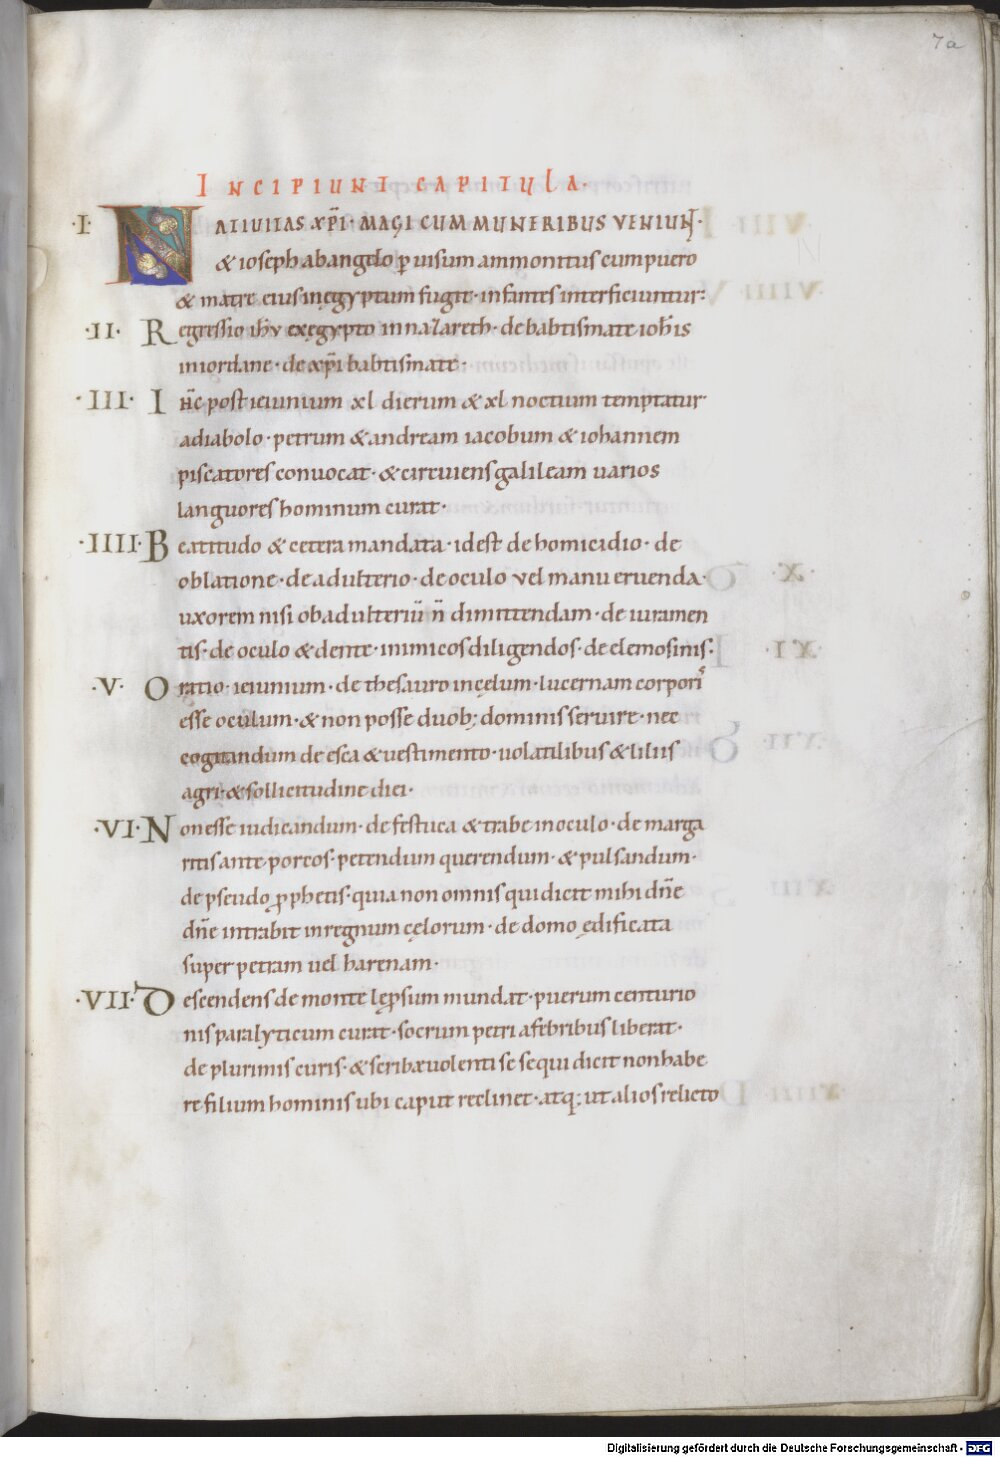 7a
INCIPIUNT CAPITULA·
·I· NATIVITAS XP̄I· MAGI CUM MUNERIBUS VENIUNT·
& ioseph ab angelo p̱ uisum ammonitus cum puero
& matre eius in ęgyptum fugit· infantes interficiuntur:
·II· Regressio ihū ex ęgypto in nazareth· de babtismate ioh̄is
in iordane· de xp̄i babtismate·
·III· IH̄C post ieiunium xl dierum & xl noctium temptatur
a diabolo· petrum & andream iacobum & iohannem
piscatores conuocat· & circuiens galileam uarios
languores hominum curat·
·IIII· Beatitudo & cetera mandata· id est de homicidio· de
oblatione· de adulterio· de oculo vel manu eruenda·
uxorem nisi ob adulteriū n̄ dimittendam· de iuramen
tis· de oculo & dente· inimicos diligendos· de elemosinis·
·V· Oratio· ieiunium· de thesauro in cęlum· lucernam corporis
esse oculum· & non posse duob; dominis seruire· nec
cogitandum de esca & uestimento· uolatilibus & liliis
agri· & sollicitudine diei·
·VI· Non esse iudicandum· de festuca & trabe in oculo· de marga
ritis ante porcos· petendum querendum· & pulsandum·
de pseudo ꝓphetis· quia non omnis qui dicit mihi dn̄e
dn̄e intrabit in regnum cęlorum· de domo ędificata
super petram uel harenam·
·VII· Descendens de monte lep̱sum mundat· puerum centurio
nis paralyticum curat· socrum petri a febribus liberat·
de plurimis curis· & scribæ uolenti se sequi dicit non habe
re filium hominis ubi caput reclinet· atq; ut alios relicto
Digitalisierung gefördert durch die Deutsche Forschungsgemeinschaft - DFG